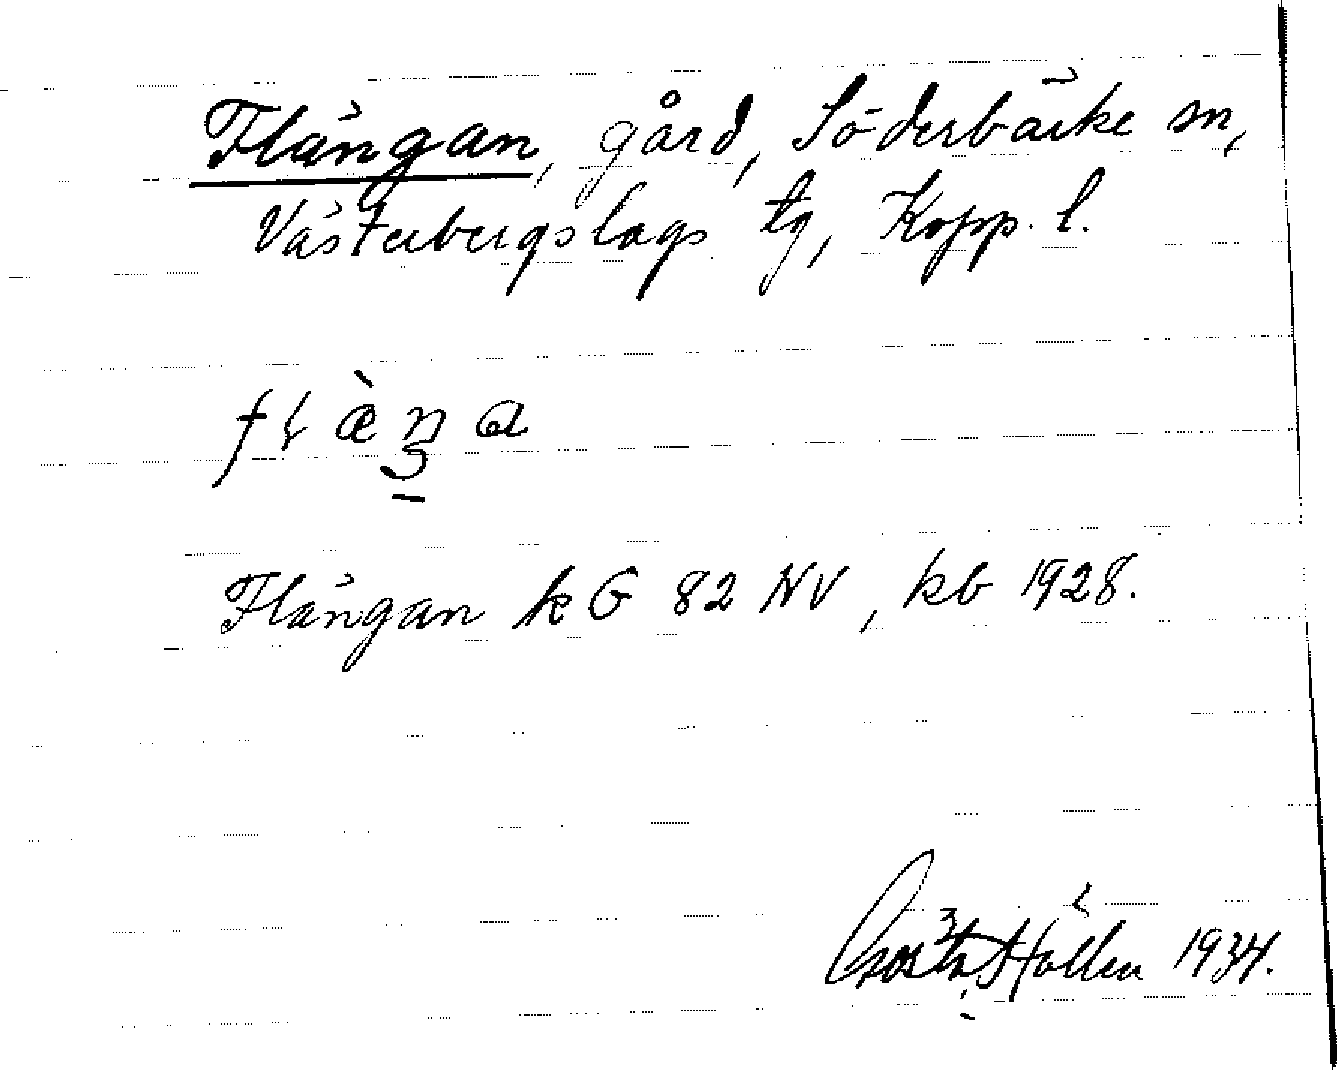 Flängan, gård, Söderbärke sn,
Västerbergslags tg, Kopp. l.
Flängan k G 82 NV, kb 1928.
Gösta Hållen 1934.